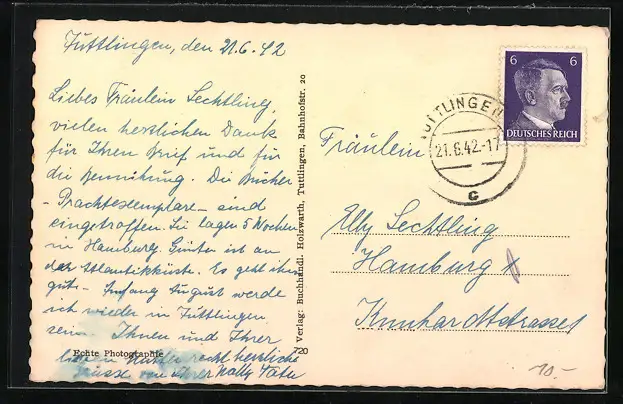 Tuttlingen, den 21.6.42
Liebes Fräulein Lechtling,
vielen herzlichen Dank
für Ihren Brief und für
die Bemühung. Die Bücher
- Prachtexemplare - sind
eingetroffen. Sie lagen 5 Wochen
in Hamburg. Günter ist an
der Atlantikküste. Es geht ihm
gut. - Anfang August werde
ich wieder in Tuttlingen
sein. Ihnen und Ihrer
lieben Mutter recht herzliche
Grüsse von Ihrer
Echte Photographie
720 Verlag: Buchhandl. Holzwarth, Tuttlingen, Bahnhofstr. 20
6 6
DEUTSCHES REICH
TUTTLINGEN
21.6.42-17
c
Fräulein
Elly Lechtling
Hamburg
10.-